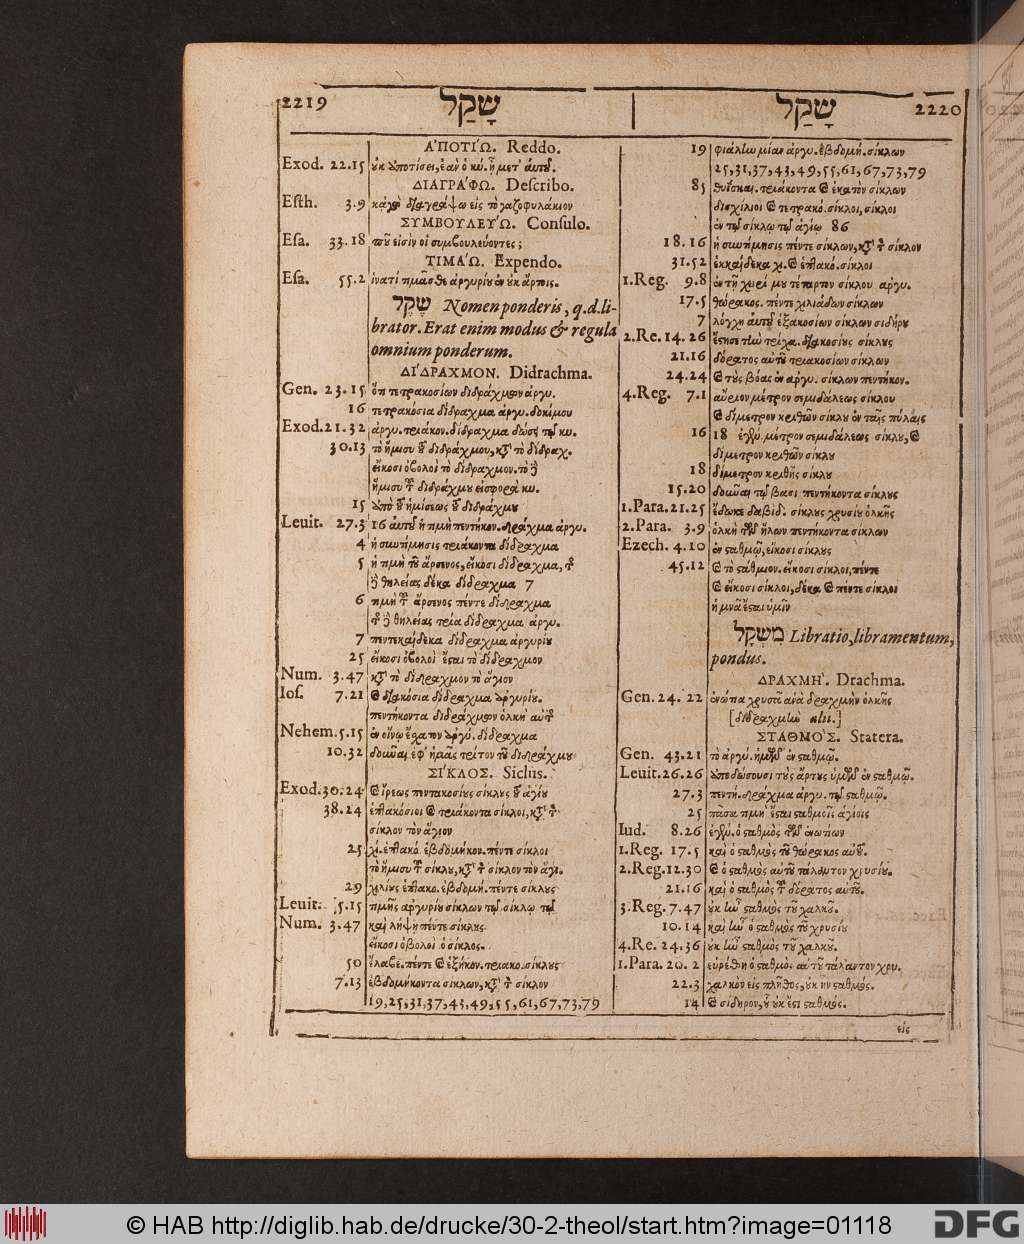 2219 שָׁקַל
ἈΠΟΤΊΩ. Reddo.
Exod. 22.15 ἐκ ἀποτίσει, ἐὰν ὁ κύ. ᾖ μετ' αὐτοῦ.
ΔΙΑΓΡΆΦΩ. Describo.
Esth. 3.9 κᾀγὼ διαγράψω εἰς τὸ γαζοφυλάκιον
ΣΥΜΒΟΥΛΕΎΩ. Consulo.
Esa. 33.18 ποῦ εἰσὶν οἱ συμβουλεύοντες;
ΤΙΜΆΩ. Expendo.
Esa. 55.2 ἱνατί τιμᾶσθε ἀργυρίου ἐν οὐκ ἄρτοις.
שֶׁקֶל Nomen ponderis, q.d. li-
brator. Erat enim modus & regula
omnium ponderum.
ΔΊΔΡΑΧΜΟΝ. Didrachma.
Gen. 23.15 τετρακοσίων διδράχμων ἀργυ.
16 τετρακόσια δίδραχμα ἀργυ. δοκίμου
Exod. 21.32 ἀργυ. τριάκον. δίδραχμα δώσει τῷ κυ.
30.13 τὸ ἥμισυ τοῦ διδράχμου, κατὰ τὸ δίδραχ.
εἴκοσι ὀβολοὶ τὸ δίδραχμον. τὸ δὲ
ἥμισυ τοῦ διδράχμου εἰσφορὰ κυ.
15 ἀπὸ τοῦ ἡμίσεως τοῦ διδράχμου
Leuit. 27.3 16 αὐτοῦ ἡ τιμὴ πεντήκον. δίδραχμα ἀργυ.
4 ἡ συντίμησις τριάκοντα δίδραχμα
5 ἡ τιμὴ τοῦ ἄρσενος, εἴκοσι δίδραχμα, τῆς
δὲ θηλείας δέκα δίδραχμα 7
6 τιμὴ τοῦ ἄρσενος πέντε δίδραχμα
τῆς δὲ θηλείας τρία δίδραχμα ἀργυ.
7 πεντεκαίδεκα δίδραχμα ἀργυρίου
25 εἴκοσι ὀβολοὶ ἔσται τὸ δίδραχμον
Num. 3.47 κατὰ τὸ δίδραχμον τὸ ἅγιον
Ios. 7.21 καὶ διακόσια δίδραχμα ἀργυρίου.
πεντήκοντα διδράχμων ὁλκὴ αὐτῆς
Nehem. 5.15 ἐν οἴνῳ ἔσχατον ἀργύ. δίδραχμα
10.32 δοῦναι ἐφ' ἡμᾶς τρίτον τοῦ διδράχμου
ΣΊΚΛΟΣ. Siclus.
Exod. 30.24 καὶ ἴρεως πεντακοσίους σίκλους τοῦ ἁγίου
38.24 ἑπτακόσιοι καὶ τριάκοντα σίκλοι, κατὰ τὸν
σίκλον τὸν ἅγιον
25 χι. ἑπτακό. ἑβδομήκον. πέντε σίκλοι
τὸ ἥμισυ τοῦ σίκλου, κατὰ τὸν σίκλον τὸν ἅγι.
29 χιλίους ἑπτακο. ἑβδομή. πέντε σίκλους
Leuit. 5.15 τιμῆς ἀργυρίου σίκλων τῷ σίκλῳ τῷ
Num. 3.47 καὶ λήψῃ πέντε σίκλους
εἴκοσι ὀβολοὶ ὁ σίκλος.
50 ἔλαβε. πέντε καὶ ἑξήκον. τριακο. σίκλους
7.13 ἑβδομήκοντα σίκλων, κατὰ τὸν σίκλον
19,25,31,37,43,49,55,61,67,73,79
שָׁקַל 2220
19 φιάλην μίαν ἀργυ. ἑβδομή. σίκλων
25,31,37,43,49,55,61,67,73,79
85 θυΐσκαι. τριάκοντα καὶ ἑκατὸν σίκλων
δισχίλιοι καὶ τετρακό. σίκλοι, σίκλοι
ἐν τῷ σίκλῳ τῷ ἁγίῳ 86
18.16 ἡ συντίμησις πέντε σίκλων, κατὰ τὸν σίκλον
31.52 ἑκκαίδεκα χι. καὶ ἑπτακό. σίκλοι
1.Reg. 9.8 ἐν τῇ χειρί μου τέταρτον σίκλου ἀργυ.
17.5 θώρακος. πέντε χιλιάδων σίκλων
7 λόγχη αὐτοῦ ἑξακοσίων σίκλων σιδήρου
2.Re. 14.26 ἔστησε τὴν τρίχα. διακοσίους σίκλους
21.16 δόρατος αὐτοῦ τριακοσίων σίκλων
24.24 καὶ τοὺς βόας ἐν ἀργυ. σίκλων πεντήκον.
4.Reg. 7.1 αὔριον μέτρον σεμιδάλεως σίκλου
καὶ δίμετρον κριθῶν σίκλου ἐν ταῖς πύλαις
16 18 ἐγέν. μέτρον σεμιδάλεως σίκλου, καὶ
δίμετρον κριθῶν σίκλου
18 δίμετρον κριθῆς σίκλου
15.20 δοῦναι τῷ βασι πεντήκοντα σίκλους
1.Para. 21.25 ἔδωκε δαβίδ. σίκλους χρυσίου ὁλκῆς
2.Para. 3.9 ὁλκὴ τῶν ἥλων πεντήκοντα σίκλων
Ezech. 4.10 ἐν σταθμῷ, εἴκοσι σίκλους
45.12 καὶ τὸ στάθμιον. εἴκοσι σίκλοι, πέντε
καὶ εἴκοσι σίκλοι, δέκα καὶ πέντε σίκλοι
ἡ μνᾶ ἔσται ὑμῖν
מִשְׁקָל Libratio, libramentum,
pondus.
ΔΡΑΧΜΉ. Drachma.
Gen. 24. 22 ἐνώτια χρυσᾶ ἀνὰ δραχμὴν ὁλκῆς
[διδραχμὴν alii.]
ΣΤΑΘΜΌΣ. Statera.
Gen. 43.21 τὸ ἀργύ. ἡμῶν ἐν σταθμῷ.
Leuit. 26.26 ἀποδώσουσι τοὺς ἄρτους ὑμῶν ἐν σταθμῷ.
27.3 πεντή. δίδραχμα ἀργυ. τῷ σταθμῷ.
25 πᾶσα τιμὴ ἔσται σταθμοῖς ἁγίοις
Iud. 8.26 ἐγέν. ὁ σταθμὸς τῶν ἐνωτίων
1.Reg. 17.5 καὶ ὁ σταθμὸς τοῦ θώρακος αὐτοῦ.
2.Reg. 12.30 καὶ ὁ σταθμὸς αὐτοῦ τάλαντον χρυσίου.
21.16 καὶ ὁ σταθμὸς τοῦ δόρατος αὐτοῦ.
3.Reg. 7.47 οὐκ ἦν σταθμὸς τοῦ χαλκοῦ.
10.14 καὶ ἦν ὁ σταθμὸς τοῦ χρυσίου
4.Re. 24.36 οὐκ ἦν σταθμὸς τοῦ χαλκοῦ.
1.Para. 20. 2 εὑρέθη ὁ σταθμὸς αὐτοῦ τάλαντον χρυ.
22.3 χαλκὸν εἰς πλῆθος, οὐκ ἦν σταθμός.
14 καὶ σίδηρον, οὗ οὐκ ἔστι σταθμός.
εἰς
© HAB http://diglib.hab.de/drucke/30-2-theol/start.htm?image=01118
DFG